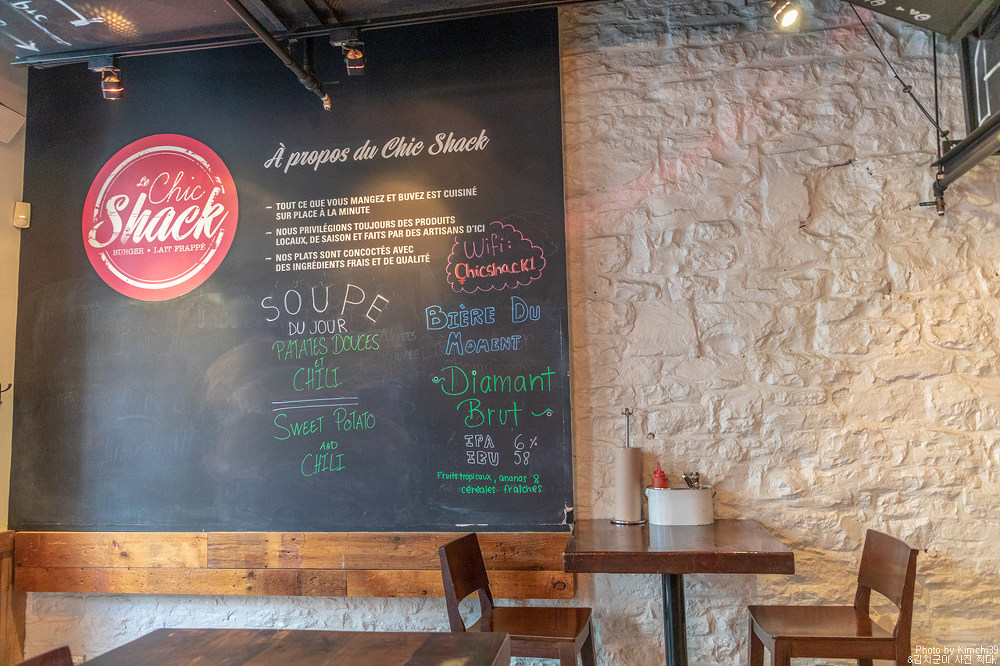 Le
Chic
Shack
BURGER • LAIT FRAPPÉ
À propos du Chic Shack
– TOUT CE QUE VOUS MANGEZ ET BUVEZ EST CUISINÉ
SUR PLACE À LA MINUTE
– NOUS PRIVILÉGIONS TOUJOURS DES PRODUITS
LOCAUX, DE SAISON ET FAITS PAR DES ARTISANS D'ICI
– NOS PLATS SONT CONCOCTÉS AVEC
DES INGRÉDIENTS FRAIS ET DE QUALITÉ
Wifi:
Chicshack1
SOUPE
DU JOUR
PATATES DOUCES
ET
CHILI
SWEET POTATO
AND
CHILI
BIÈRE DU
MOMENT
Diamant
Brut
IPA 6%
IBU 58
Fruits tropicaux, ananas &
céréales fraîches
Photo by Kimchi39
&김치군이 사진 찍다.